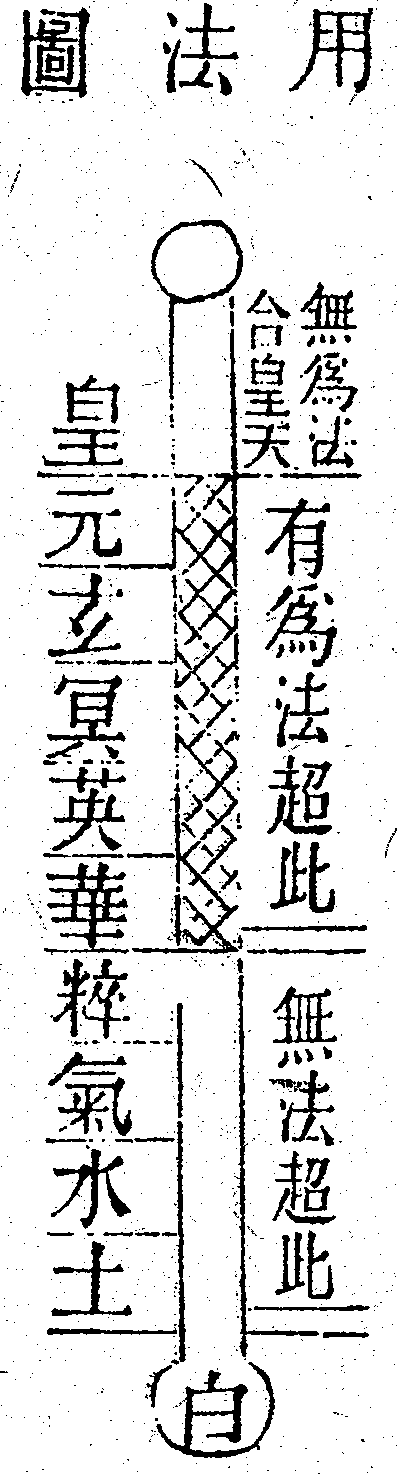 用法圖
無爲法
合皇天
有爲法超此
無法超此
皇
元
玄
冥
英
華
粹
氣
水
土
白